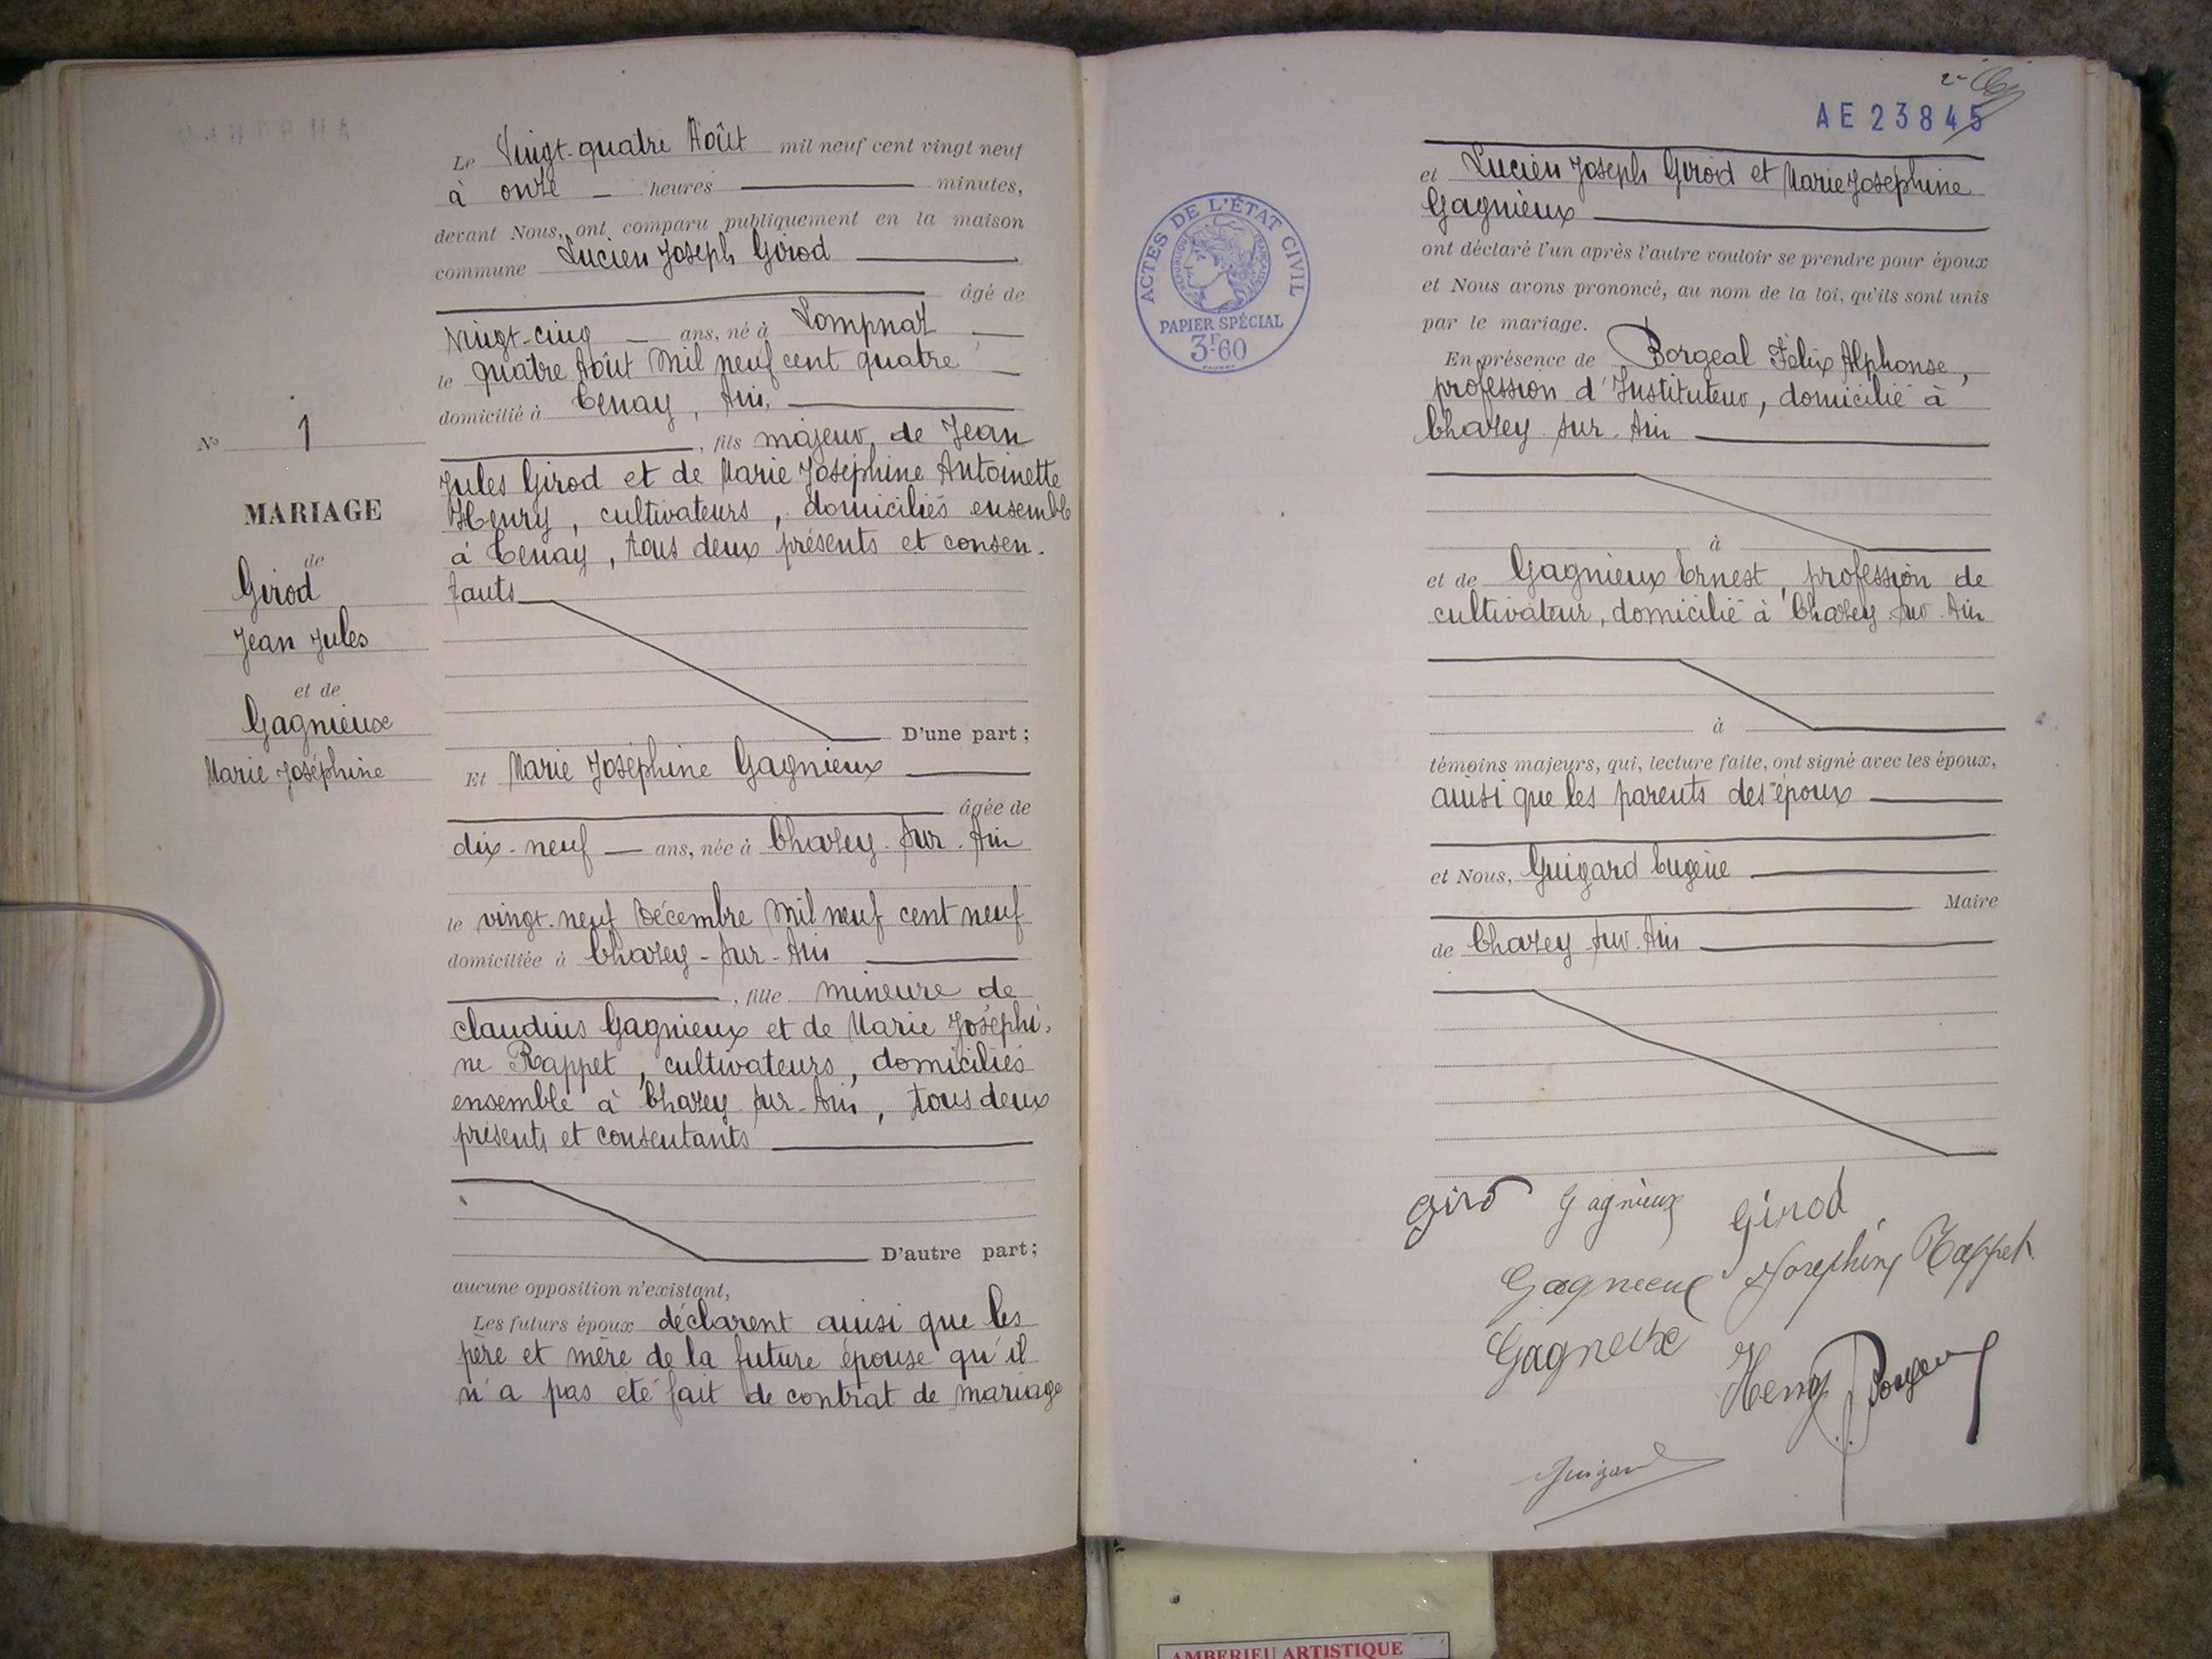 Le Vingt-quatre Août mil neuf cent vingt neuf
à onze heures minutes,
devant Nous, ont comparu publiquement en la maison
commune Lucien Joseph Girod
âgé de
vingt-cinq ans, né à Lompnaz
le quatre Août mil neuf cent quatre
domicilié à Tenay, Ain,
, fils majeur, de Jean
Jules Girod et de Marie Joséphine Antoinette
Henry, cultivateurs, domiciliés ensemble
à Tenay, tous deux présents et consen-
tants
D'une part;
No 1
MARIAGE
de
Girod
Jean Jules
et de
Gagnieux
Marie Joséphine
Et Marie Joséphine Gagnieux
âgée de
dix-neuf ans, née à Chazey-sur-Ain
le vingt-neuf Décembre mil neuf cent neuf
domiciliée à Chazey-sur-Ain
, fille mineure de
Claudius Gagnieux et de Marie Joséphi-
ne Rappet, cultivateurs, domiciliés
ensemble à Chazey-sur-Ain, tous deux
présents et consentants
D'autre part;
aucune opposition n'existant,
Les futurs époux déclarent ainsi que les
père et mère de la future épouse qu'il
n'a pas été fait de contrat de mariage
AE 23845
et Lucien Joseph Girod et Marie Josephine
Gagnieux
ont déclaré l'un après l'autre vouloir se prendre pour époux
et Nous avons prononcé, au nom de la loi, qu'ils sont unis
par le mariage.
En présence de Borgeal Félix Alphonse,
profession d'Instituteur, domicilié à
Chazey-sur-Ain
à
et de Gagnieux Ernest, profession de
cultivateur, domicilié à Chazey-sur-Ain
à
témoins majeurs, qui, lecture faite, ont signé avec les époux,
ainsi que les parents des époux
et Nous, Guigard Eugène
Maire
de Chazey-sur-Ain
ACTES DE L'ÉTAT CIVIL
RÉPUBLIQUE FRANÇAISE
PAPIER SPÉCIAL
3F.60
Giro Gagnieux Girod
Gagnieux Joséphine Rappet
Gagneux Henry
Guigard
AMBERIEU ARTISTIQUE